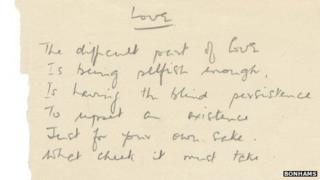 Love
The difficult part of love
Is being selfish enough,
Is having the blind persistence
To upset an existence
Just for your own sake.
What cheek it must take.
BONHAMS